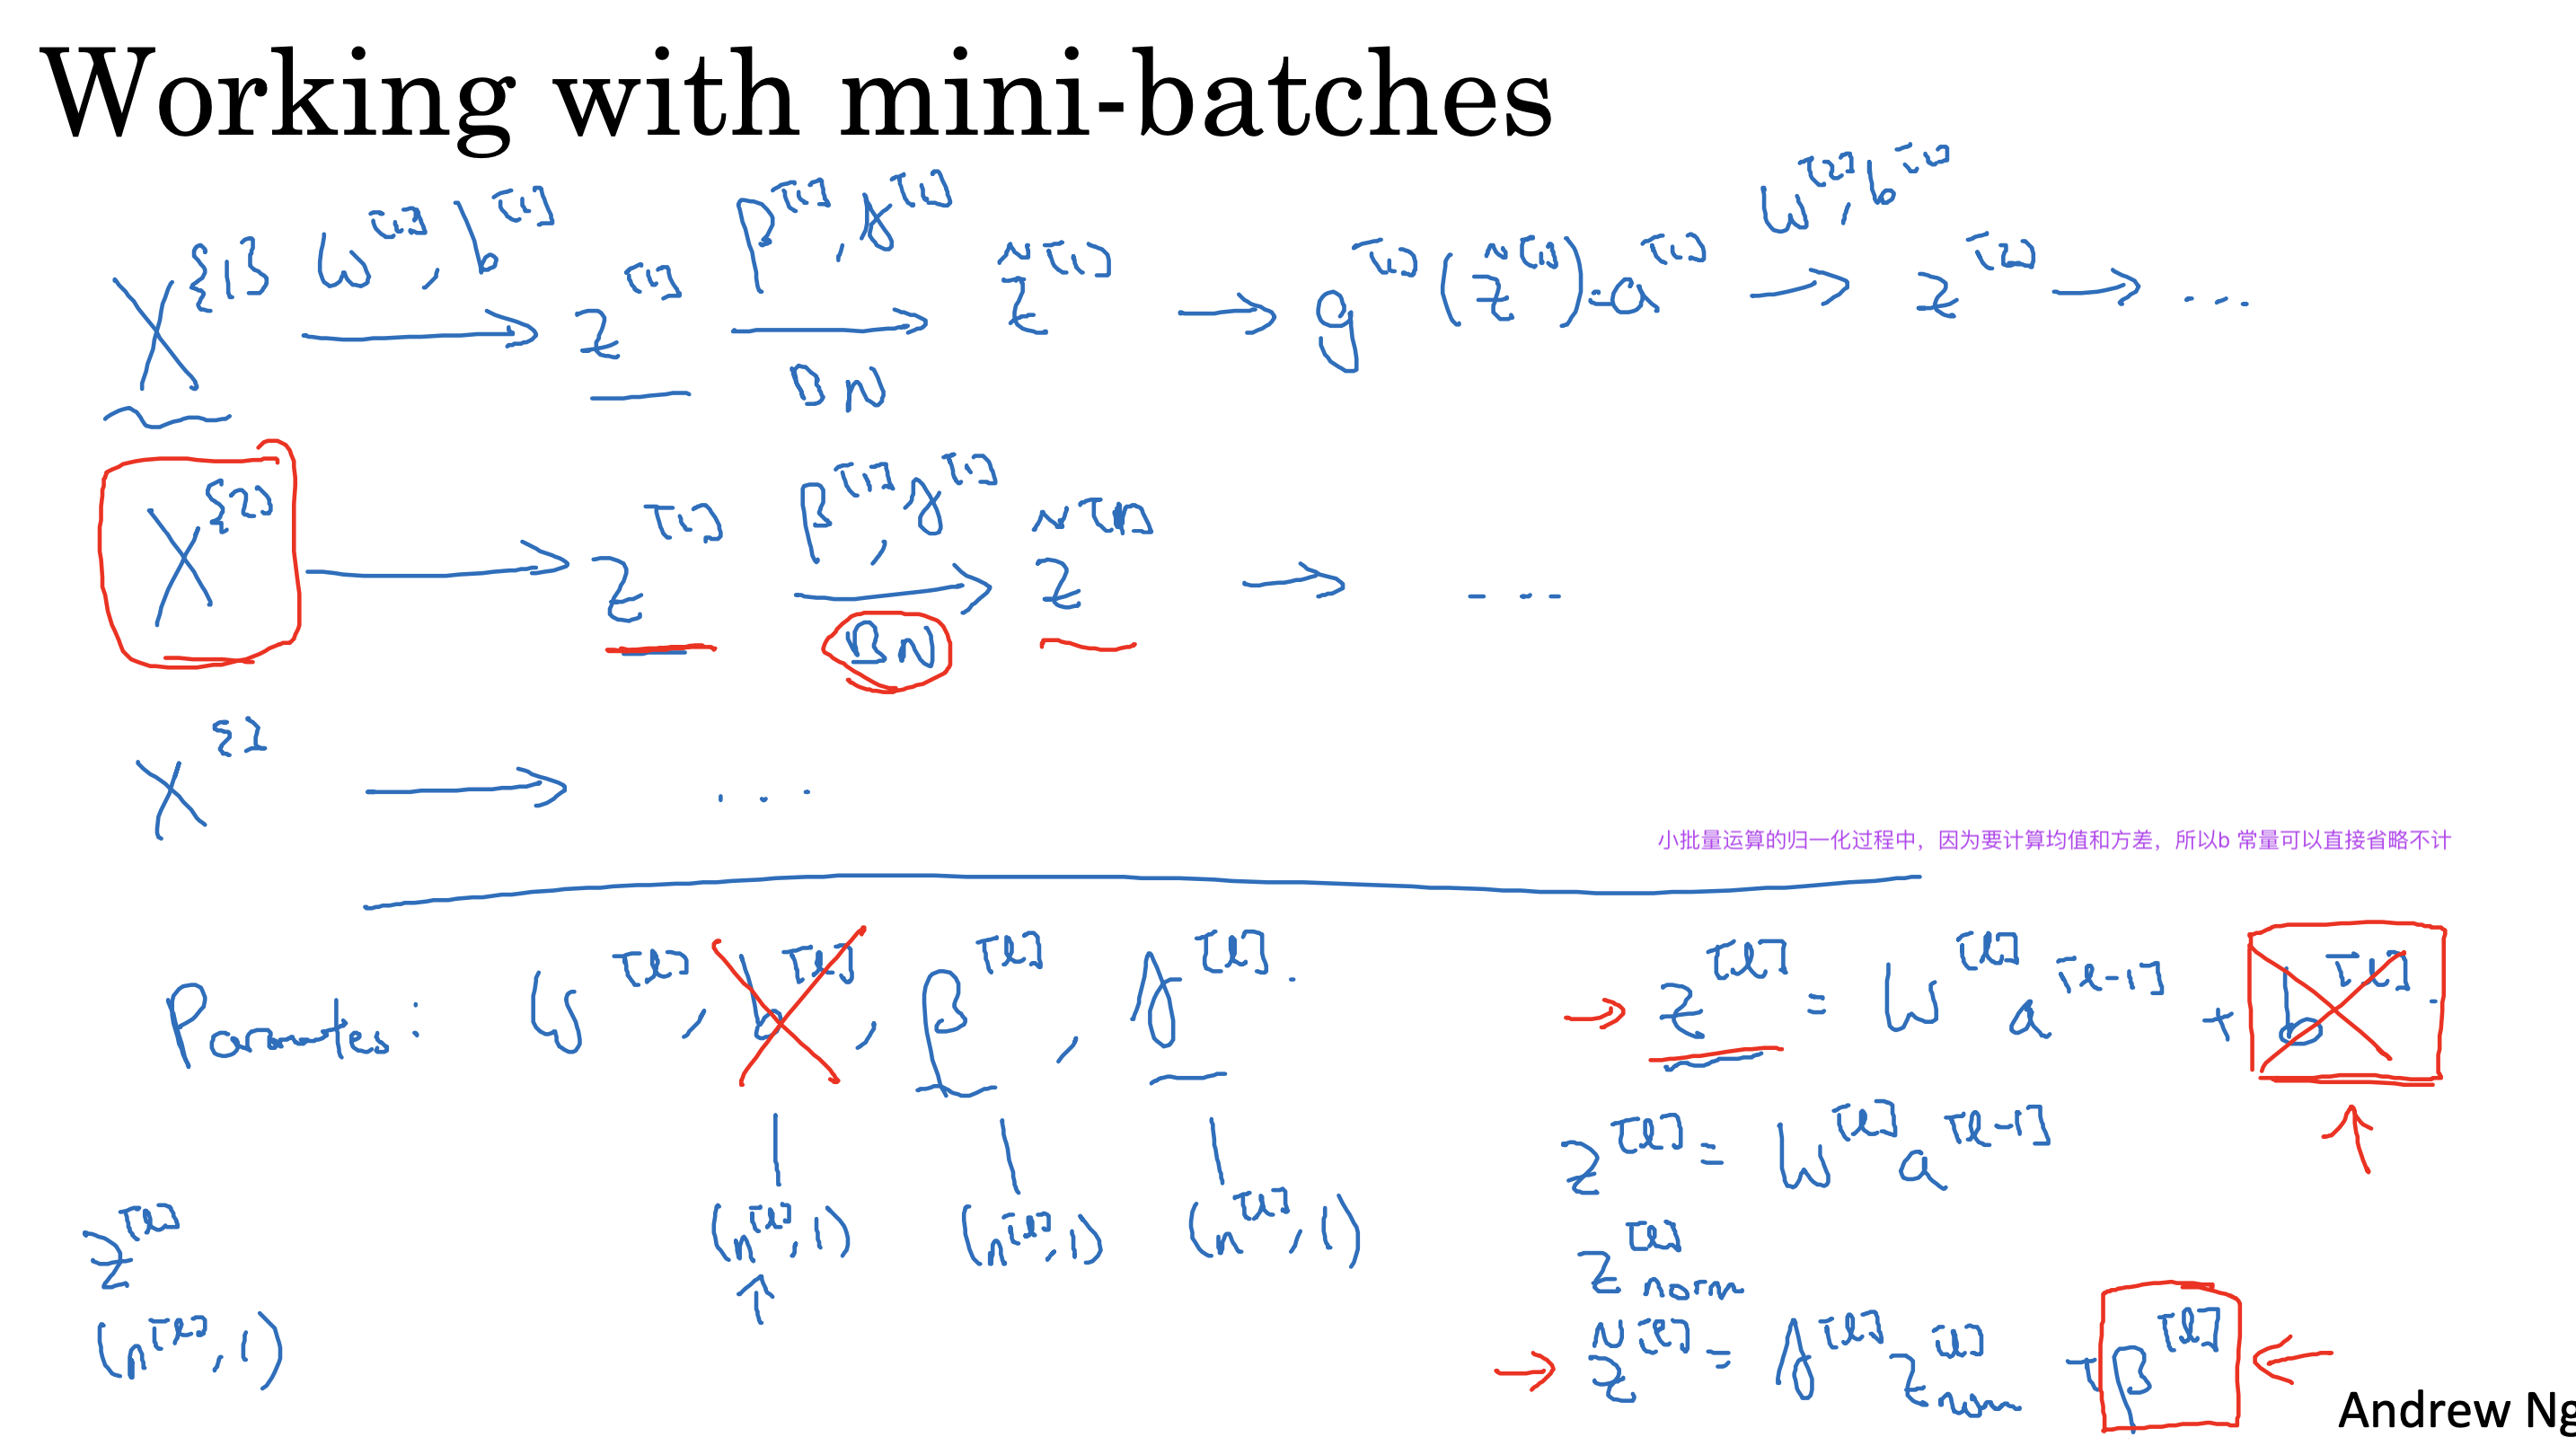 Working with mini-batches
X^{1} W^[1], b^[1] → z^[1] β^[1], γ^[1] → BN z̃^[1] → g^[1](z̃^[1]) = a^[1] W^[2], b^[2] → z^[2] → ...
X^{2} → z^[1] β^[1], γ^[1] → BN z̃^[1] → ...
X^{} → ...
小批量运算的归一化过程中，因为要计算均值和方差，所以b 常量可以直接省略不计
Parameters: W^[l], b^[l], β^[l], γ^[l].
(n^[l], 1) (n^[l], 1) (n^[l], 1)
z^[l]
(n^[l], 1)
→ z^[l] = W^[l] a^[l-1] + b^[l]
z^[l] = W^[l] a^[l-1]
z^[l] norm
→ z̃^[l] = γ^[l] z^[l] norm + β^[l]
Andrew Ng